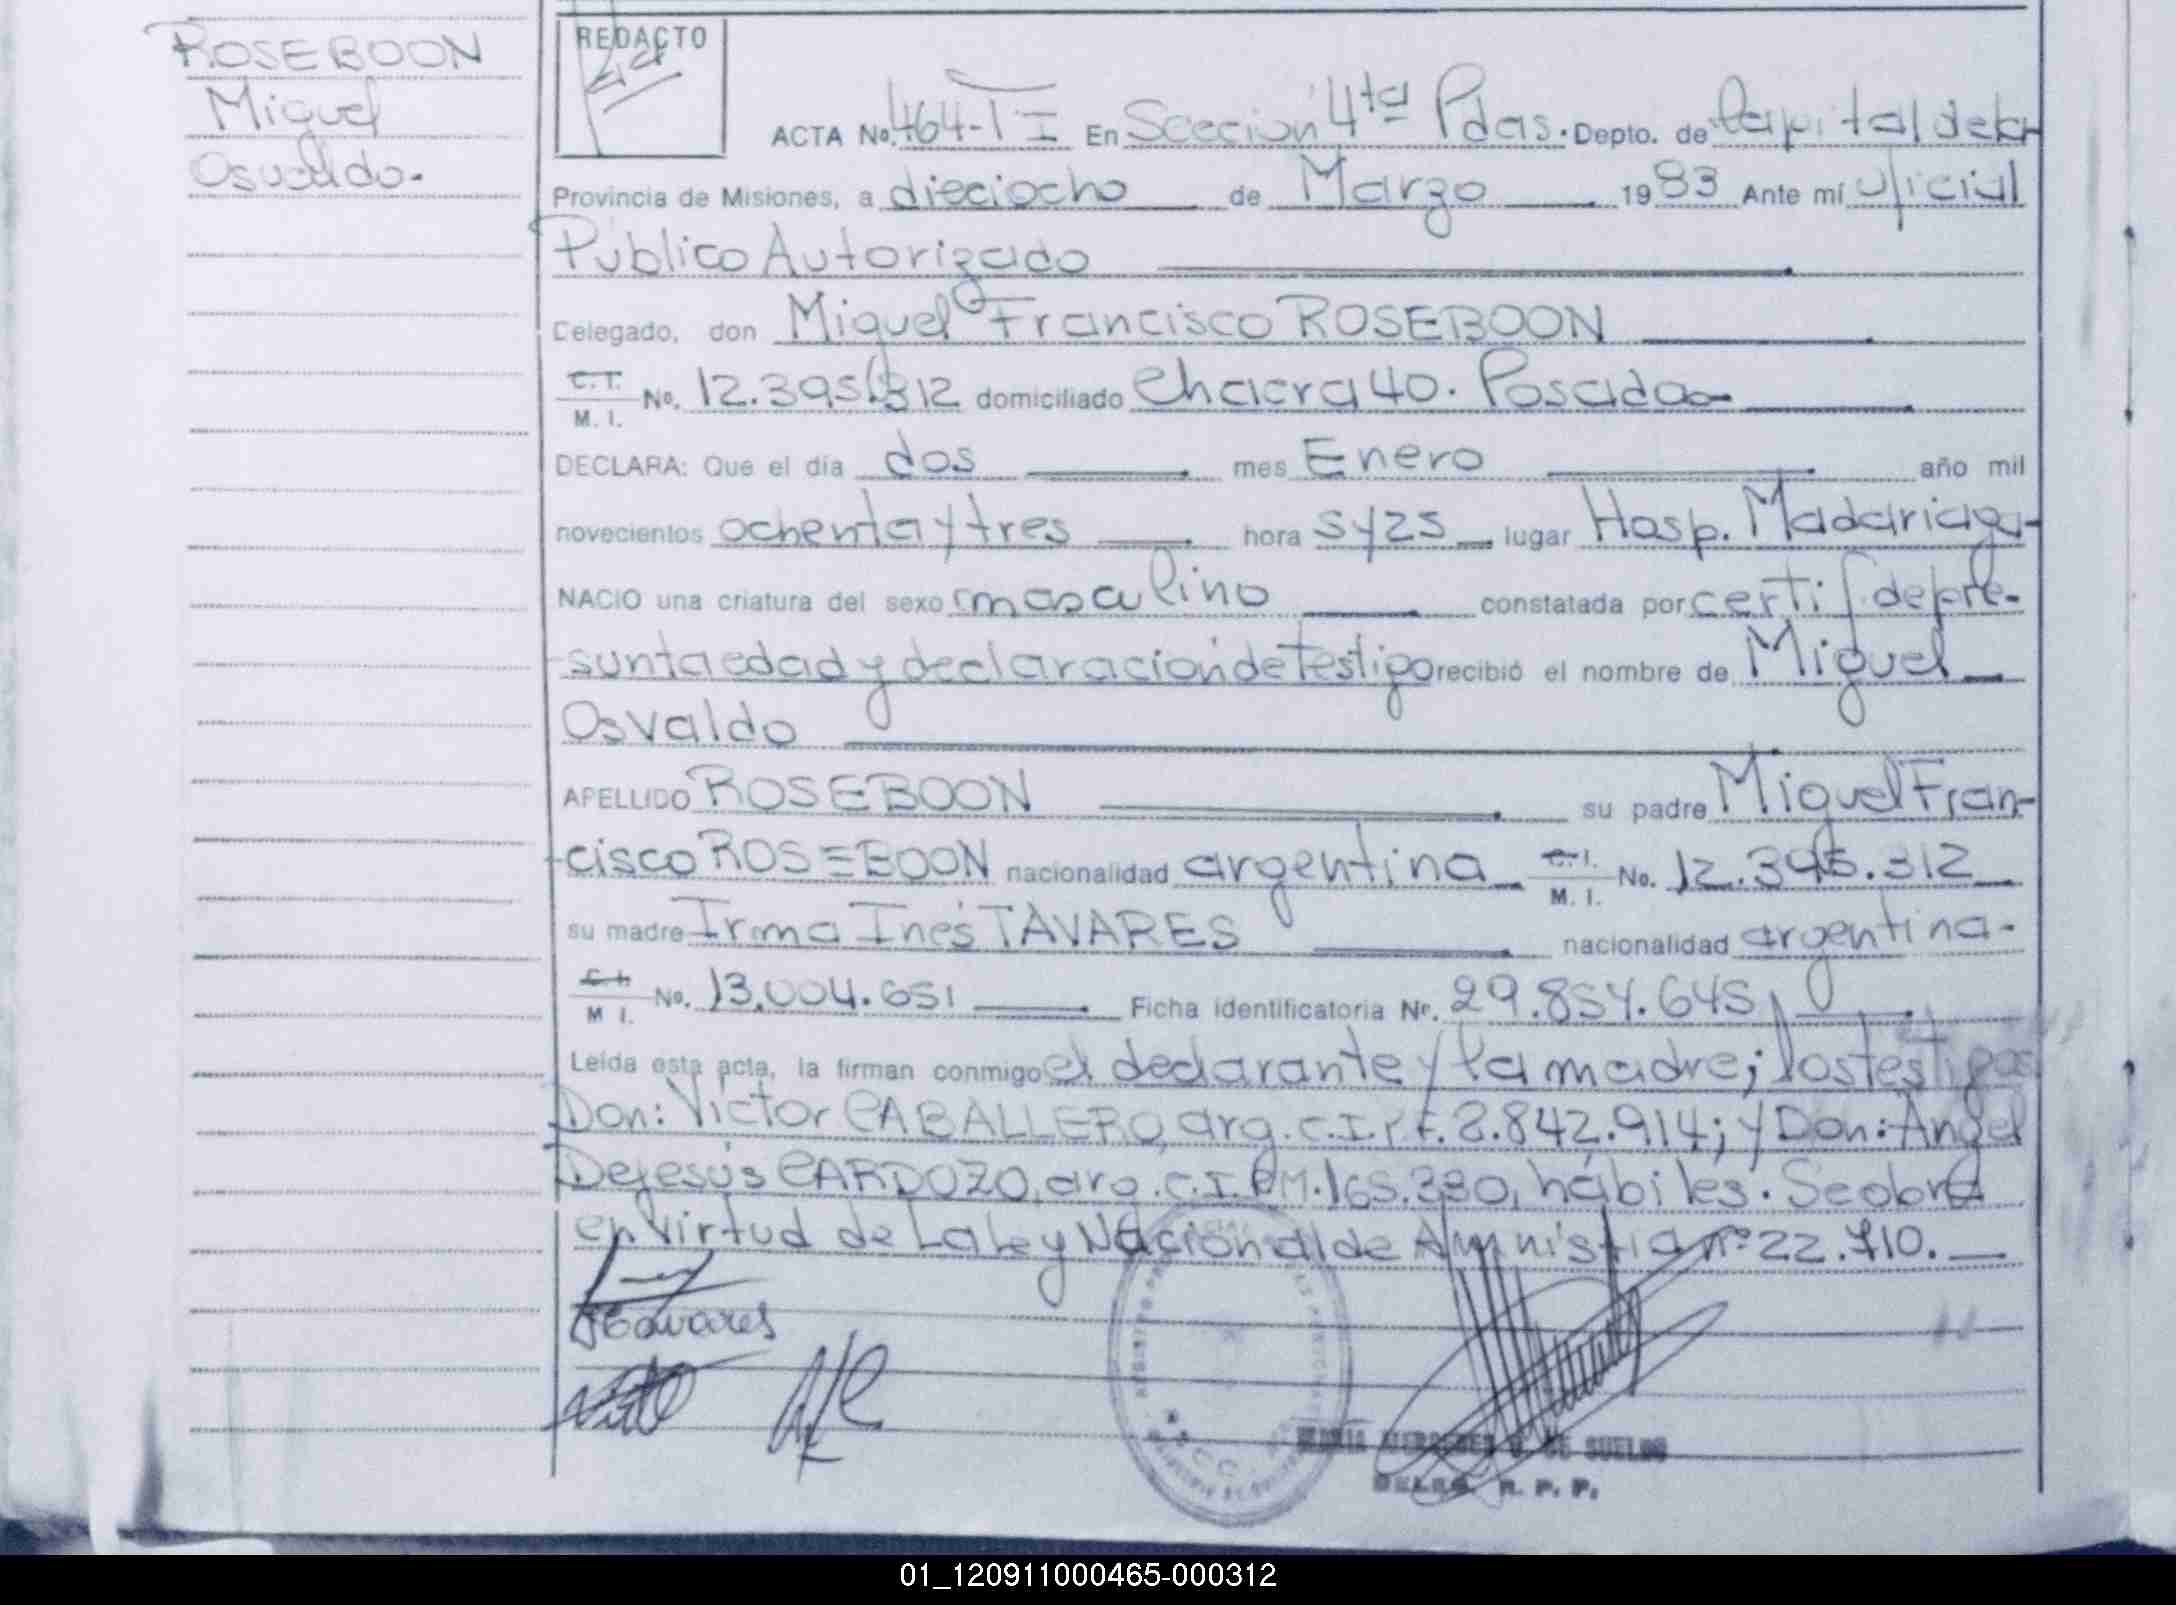 ROSEBOON
Miguel
Osvaldo.
REDACTO
ACTA No. 464-TI En Sceción 4ta Pdas. Depto. de Capital de la
Provincia de Misiones, a dieciocho de Marzo 1983 Ante mí Oficial
Público Autorizado
Delegado, don Miguel Francisco ROSEBOON
C.I. M. I. No. 12.395.312 domiciliado Chacra 40. Posadas
DECLARA: Que el día dos mes Enero año mil
novecientos ochenta y tres hora 5 y 25 lugar Hosp. Madariaga-
NACIO una criatura del sexo masculino constatada por certif. de pre-
sunta edad y declaración de Testigo recibió el nombre de Miguel
Osvaldo
APELLIDO ROSEBOON su padre Miguel Fran-
cisco ROSEBOON nacionalidad argentina C.I. M. I. No. 12.395.312
su madre Irma Inés TAVARES nacionalidad argentina-
C.I. M I. No. 13.004.651 Ficha identificatoria Nr. 29.854.645
Leída esta acta, la firman conmigo el declarante y la madre; los testigos
Don: Víctor CABALLERO, arg. c.I.P.F. 8.842.914; y Don: Angel
Dejesús CARDOZO, arg. c.I.PM. 165.330, hábiles. Se obra
en virtud de La Ley Nacional de Amnistía nº 22.710.
DE SUELDO
R. P. P.
01_120911000465-000312